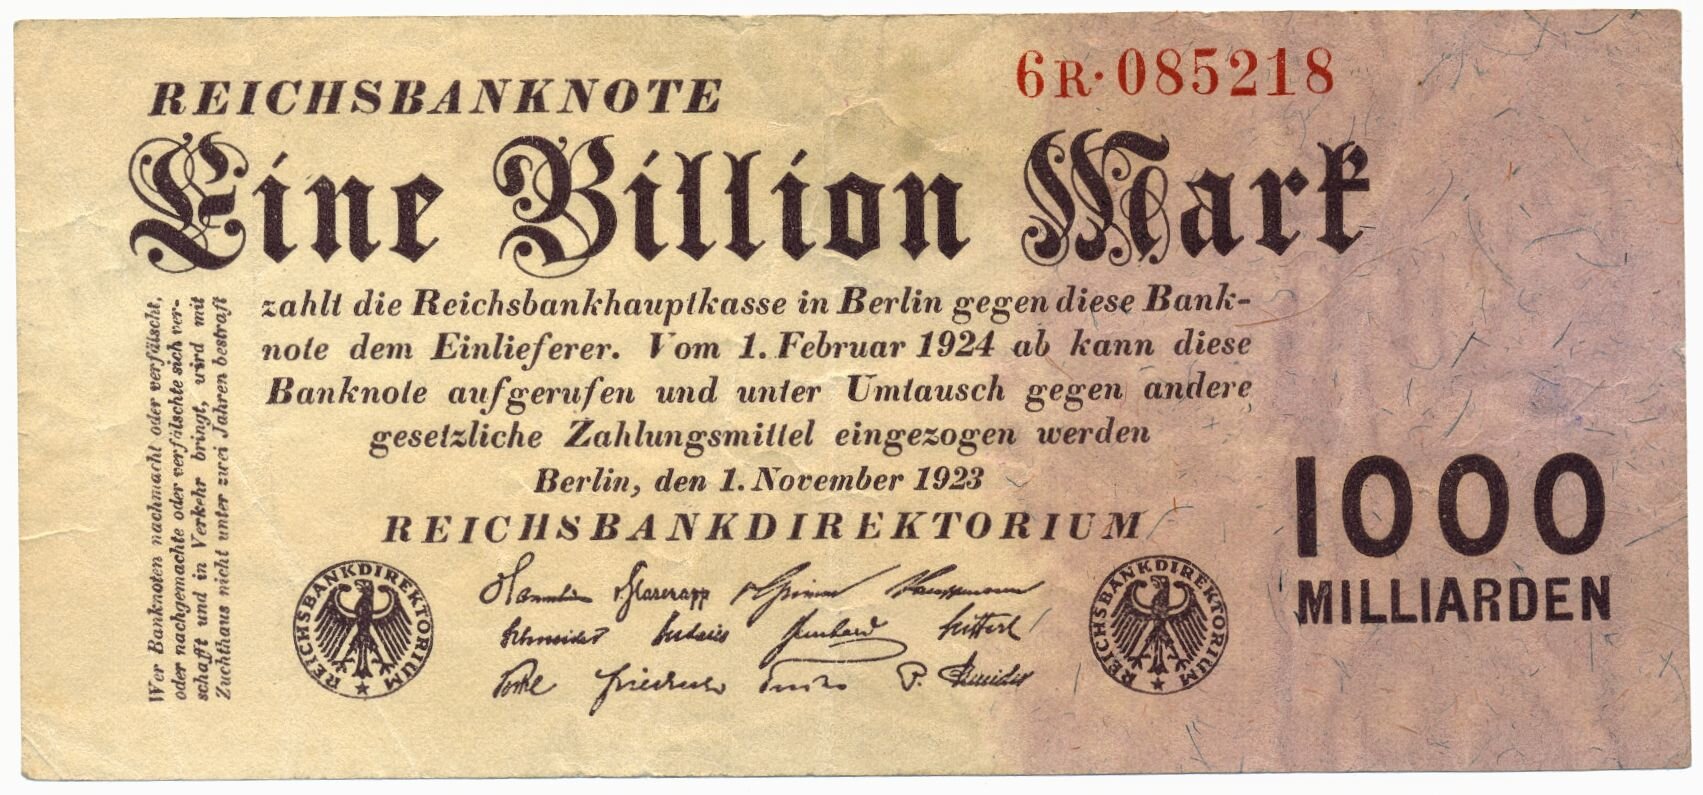 6R·085218
REICHSBANKNOTE
Eine Billion Mark
zahlt die Reichsbankhauptkasse in Berlin gegen diese Bank-
note dem Einlieferer. Vom 1. Februar 1924 ab kann diese
Banknote aufgerufen und unter Umtausch gegen andere
gesetzliche Zahlungsmittel eingezogen werden
Berlin, den 1. November 1923
REICHSBANKDIREKTORIUM
Wer Banknoten nachmacht oder verfälscht,
oder nachgemachte oder verfälschte sich ver-
schafft und in Verkehr bringt, wird mit
Zuchthaus nicht unter zwei Jahren bestraft
1000
MILLIARDEN
REICHSBANKDIREKTORIUM
v. Glasenapp v. Grimm Kauffmann
Schneider Budczies Bernhard Seiffert
Vocke Friedrich P. Schneider
REICHSBANKDIREKTORIUM